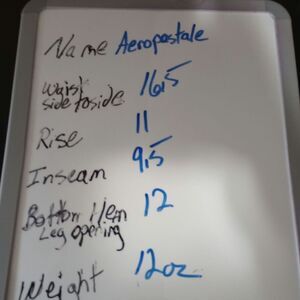 Name Aeropostale
Waist side to side 16.5
Rise 11
Inseam 9.5
Bottom Hem Leg opening 12
Weight 12oz